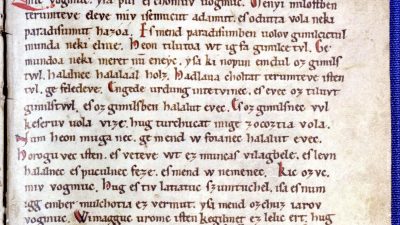 mic vogmuc. yſa pur eſ chomuv uogmuc. Menyi miloſtben
terumteve eleve miv iſemucut adamut. eſ odutta vola neki
paradiſumut hazoa. Eſ mend paradiſumben uolov gimilcictul
munda neki elnie. Heon tilutoa wt ig fa gimilce tvl. Ge
mundoa neki meret nū eneyc. yſa ki nopun emdul oz gimilſ
twl. halalnec halalaal holz. Hadlaua choltat terumteve iſten
tvl. ge feledeve. Engede urdung intetvinec. eſ evec oz tiluvt
gimilſtvl. eſ oz gimilſben halalut evec. Eſ oz gimilſnec vvl
keſeruv uola vize. hug turchucat mige zocoztia vola.
Num heon muga nec. ge mend w foianec halalut evec.
Horogu vec iſten. eſ veteve wt ez muncaſ vilagbele. eſ levn
halalnec eſ puculnec feze. eſ mend w nemenec. Kic ozvc.
miv vogmuc. Hug eſ tiv latiatuv ſzumtuchel. iſa eſ num
igg ember mulchotia ez vermut. yſa mend ozchuz iarov
vogmuc. Wimagguc uromv iſten kegilmet ez lelic ert. hug